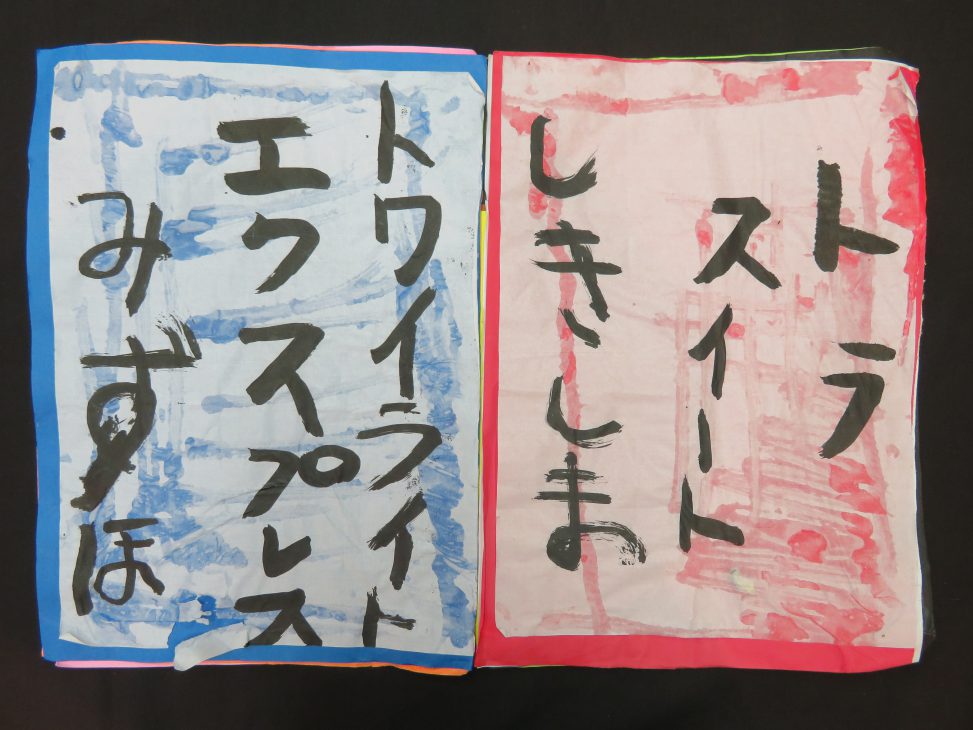 トラ
スイート
しきしま
トワイライト
エクスプレス
みずほ